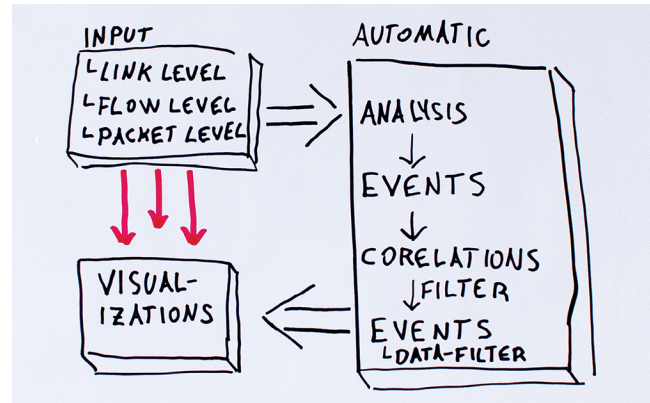 INPUT
LINK LEVEL
FLOW LEVEL
PACKET LEVEL
VISUAL-
IZATIONS
AUTOMATIC
ANALYSIS
EVENTS
CORELATIONS
FILTER
EVENTS
DATA-FILTER